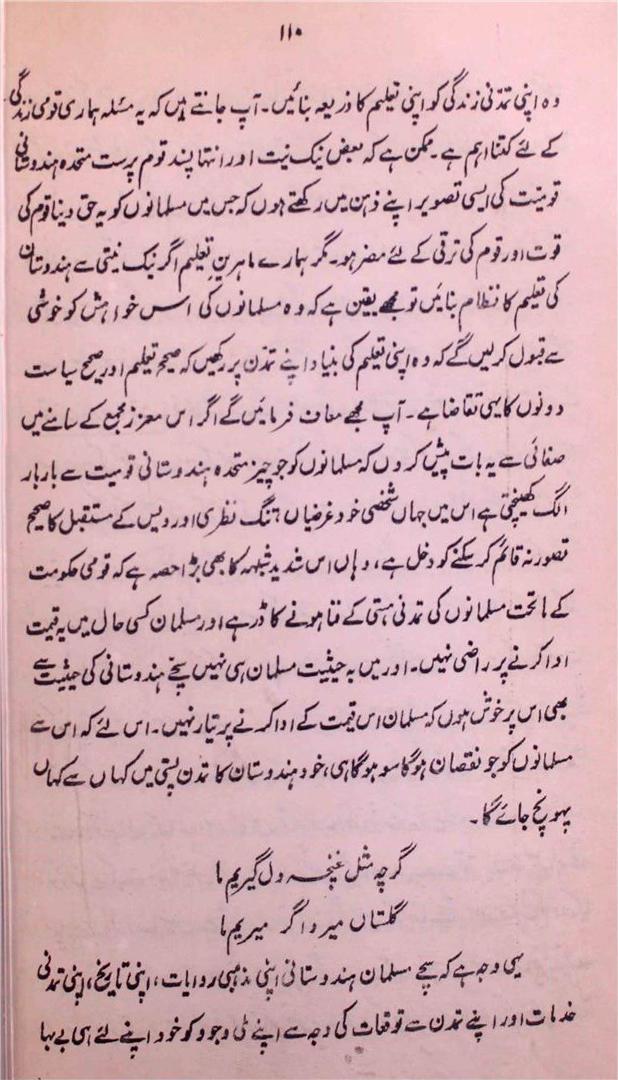 ۱۱۰
وہ اپنی تمدنی زندگی کو اپنی تعلیم کا ذریعہ بنائیں۔ آپ جانتے ہیں کہ یہ مسئلہ ہماری قومی زندگی
کے لئے کتنا اہم ہے۔ ممکن ہے کہ بعض نیک نیت اور انتہا پسند قوم پرست متحدہ ہندوستانی
قومیت کی ایسی تصویر اپنے ذہن میں رکھتے ہوں کہ جس میں مسلمانوں کو یہ حق دینا قوم کی
قوت اور قوم کی ترقی کے لئے مضر ہو۔ مگر ہمارے ماہرینِ تعلیم اگر نیک نیتی سے ہندوستان
کی تعلیم کا نظام بنائیں تو مجھے یقین ہے کہ وہ مسلمانوں کی اس خواہش کو خوشی
سے قبول کرلیں گے کہ وہ اپنی تعلیم کی بنیاد اپنے تمدن پر رکھیں کہ صحیح تعلیم اور صحیح سیاست
دونوں کا یہی تقاضا ہے۔ آپ مجھے معاف فرمائیں گے اگر اس معزز مجمع کے سامنے میں
صفائی سے یہ بات پیش کروں کہ مسلمانوں کو جو چیز متحدہ ہندوستانی قومیت سے بار بار
الگ کھینچتی ہے اس میں جہاں شخصی خود غرضیاں، تنگ نظری اور دیس کے مستقبل کا صحیح
تصور نہ قائم کرسکنے کو دخل ہے، وہاں اس شدید شبہہ کا بھی بڑا حصہ ہے کہ قومی حکومت
کے ماتحت مسلمانوں کی تمدنی ہستی کے فنا ہونے کا ڈر ہے اور مسلمان کسی حال میں یہ قیمت
ادا کرنے پر راضی نہیں۔ اور میں بہ حیثیت مسلمان ہی نہیں سچے ہندوستانی کی حیثیت سے
بھی اس پر خوش ہوں کہ مسلمان اس قیمت کے ادا کرنے پر تیار نہیں۔ اس لئے کہ اس سے
مسلمانوں کو جو نقصان ہوگا سو ہوگا ہی، خود ہندوستان کا تمدن پستی میں کہاں سے کہاں
پہونچ جائے گا۔
گرچہ مثل غنچہ دل گیریم ما
گلستاں میرد اگر میریم ما
یہی وجہ ہے کہ سچے مسلمان ہندوستانی اپنی مذہبی روایات، اپنی تاریخ، اپنی تمدنی
خدمات اور اپنے تمدن سے توقعات کی وجہ سے اپنے ملی وجود کو خود اپنے لئے ہی بے بہا